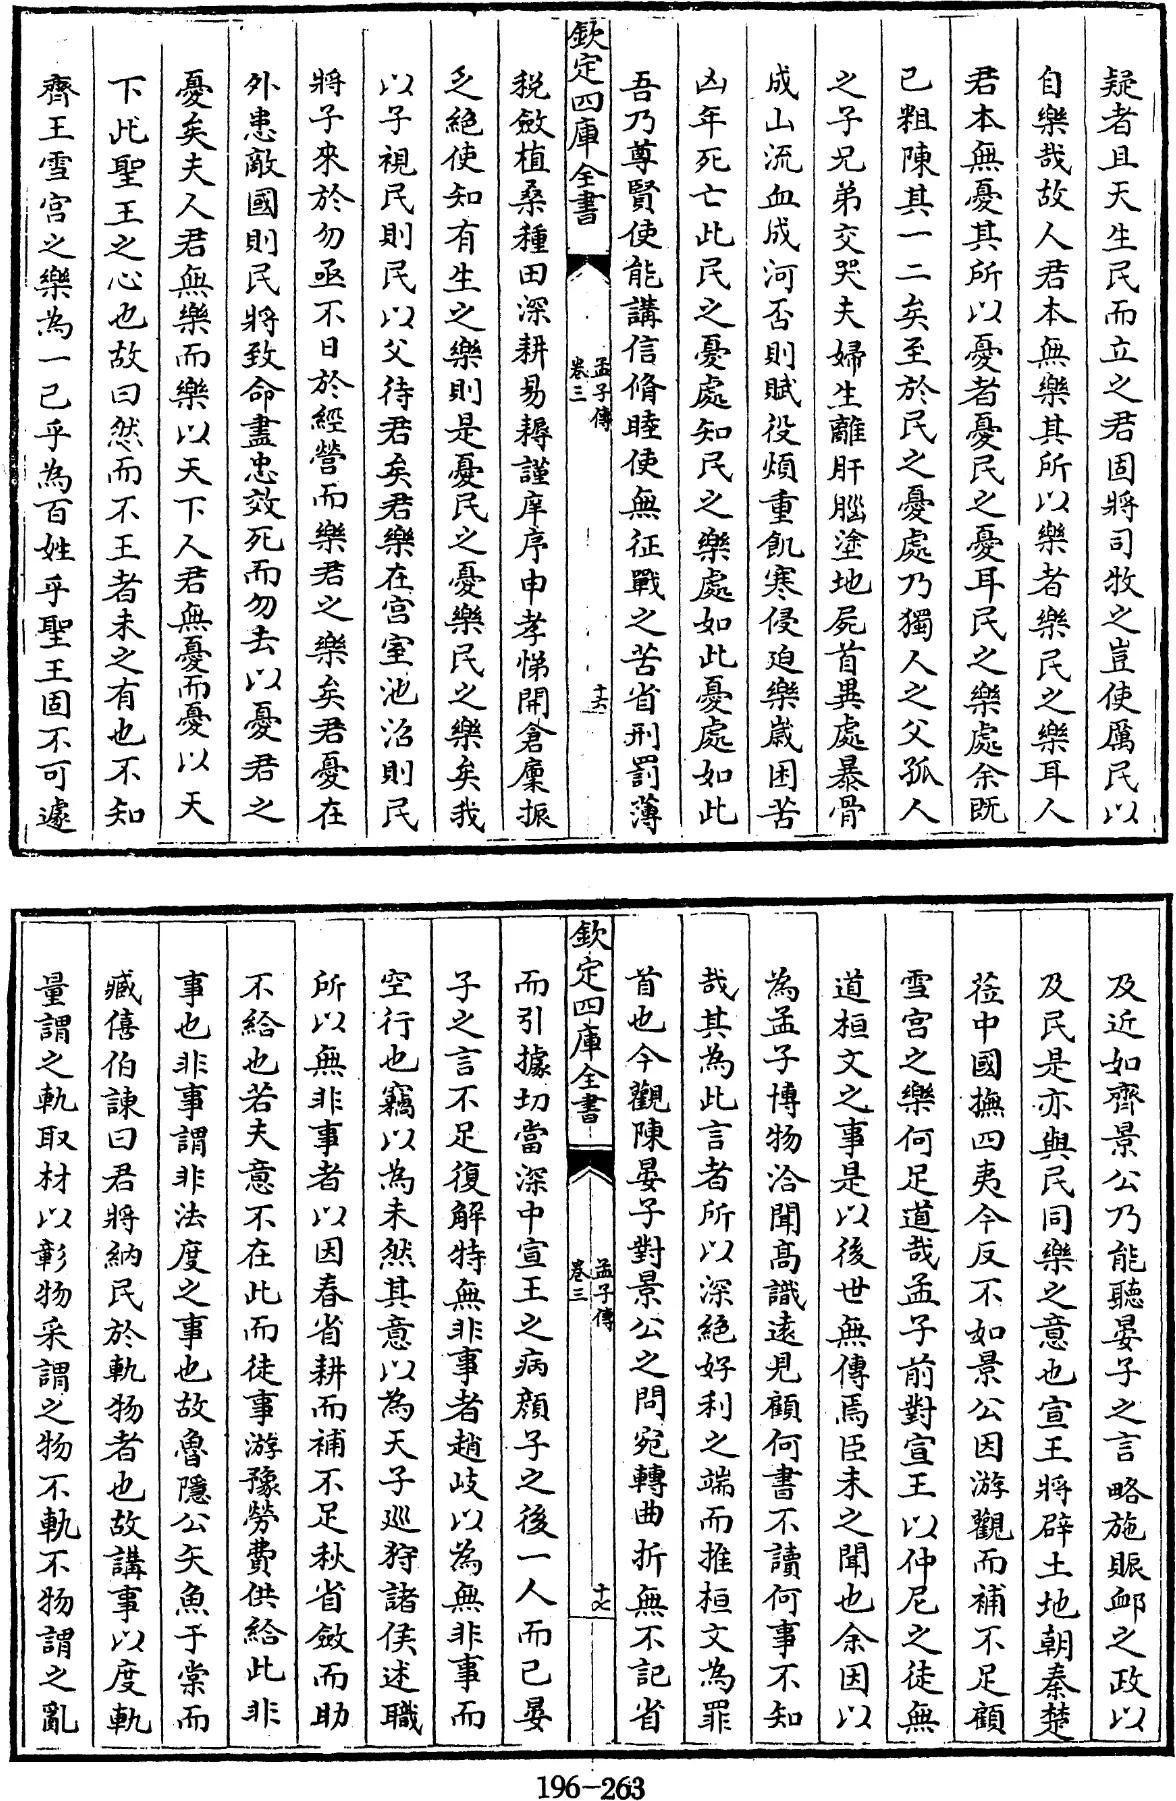 疑者且天生民而立之君固將司牧之豈使厲民以
自樂哉故人君本無樂其所以樂者樂民之樂耳人
君本無憂其所以憂者憂民之憂耳民之樂處余既
已粗陳其一二矣至於民之憂處乃獨人之父孤人
之子兄弟交哭夫婦生離肝腦塗地屍首異處暴骨
成山流血成河否則賦役煩重飢寒侵迫樂嵗困苦
凶年死亡此民之憂處知民之樂處如此憂處如此
吾乃尊賢使能講信脩睦使無征戰之苦省刑罰薄
欽定四庫全書
孟子傳
卷三
十六
稅斂植桑種田深耕易耨謹庠序申孝悌開倉廩振
乏絶使知有生之樂則是憂民之憂樂民之樂矣我
以子視民則民以父待君矣君樂在宫室池沼則民
將子來於勿亟不日於經營而樂君之樂矣君憂在
外患敵國則民將致命盡忠效死而勿去以憂君之
憂矣夫人君無樂而樂以天下人君無憂而憂以天
下此聖王之心也故曰然而不王者未之有也不知
齊王雪宫之樂為一己乎為百姓乎聖王固不可遽
及近如齊景公乃能聽晏子之言略施賑䘏之政以
及民是亦與民同樂之意也宣王將辟土地朝秦楚
莅中國撫四夷今反不如景公因游觀而補不足顧
雪宫之樂何足道哉孟子前對宣王以仲尼之徒無
道桓文之事是以後世無傳焉臣未之聞也余因以
為孟子博物洽聞髙識遠見顧何書不讀何事不知
哉其為此言者所以深絶好利之端而推桓文為罪
首也今觀陳晏子對景公之問宛轉曲折無不記省
欽定四庫全書
孟子傳
卷三
十七
而引據切當深中宣王之病顔子之後一人而已晏
子之言不足復解特無非事者趙岐以為無非事而
空行也竊以為未然其意以為天子廵狩諸侯述職
所以無非事者以因春省耕而補不足秋省斂而助
不給也若夫意不在此而徒事游豫勞費供給此非
事也非事謂非法度之事也故魯隱公矢魚于棠而
臧僖伯諫曰君將納民於軌物者也故講事以度軌
量謂之軌取材以彰物采謂之物不軌不物謂之亂
196-263